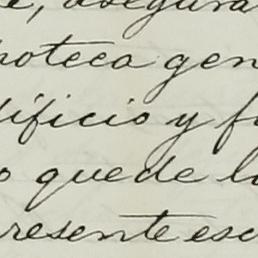 e, asegura
poteca gen
dificio y f
o quede l
resente esc